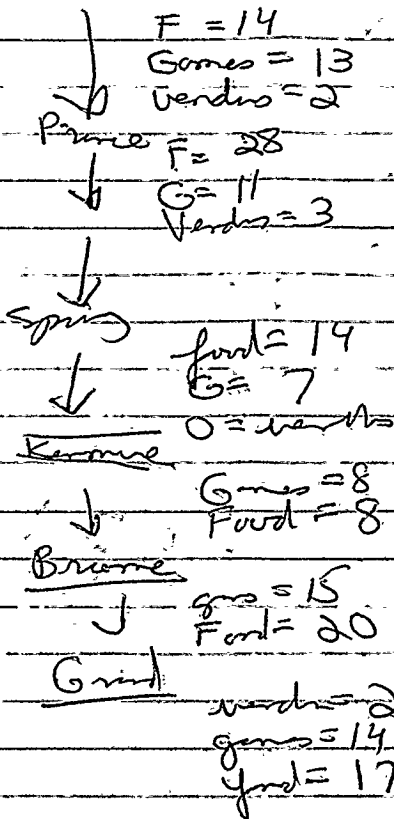 F = 14
Games = 13
vendors = 2
Prince
F = 28
G = 11
Vendors = 3
Spring
food = 14
G = 7
0 = vendors
Games = 8
Food = 8
games = 15
Food = 20
Grind
vendors = 2
games = 14
food = 17